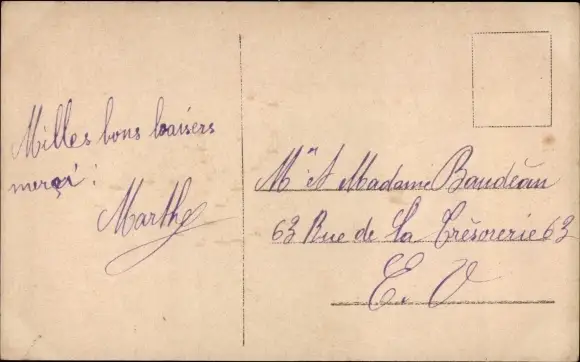 Milles bons baisers
merçi.
Marthe
Mr et Madame Baudéan
63 Rue de la Trésorerie 63
E. V